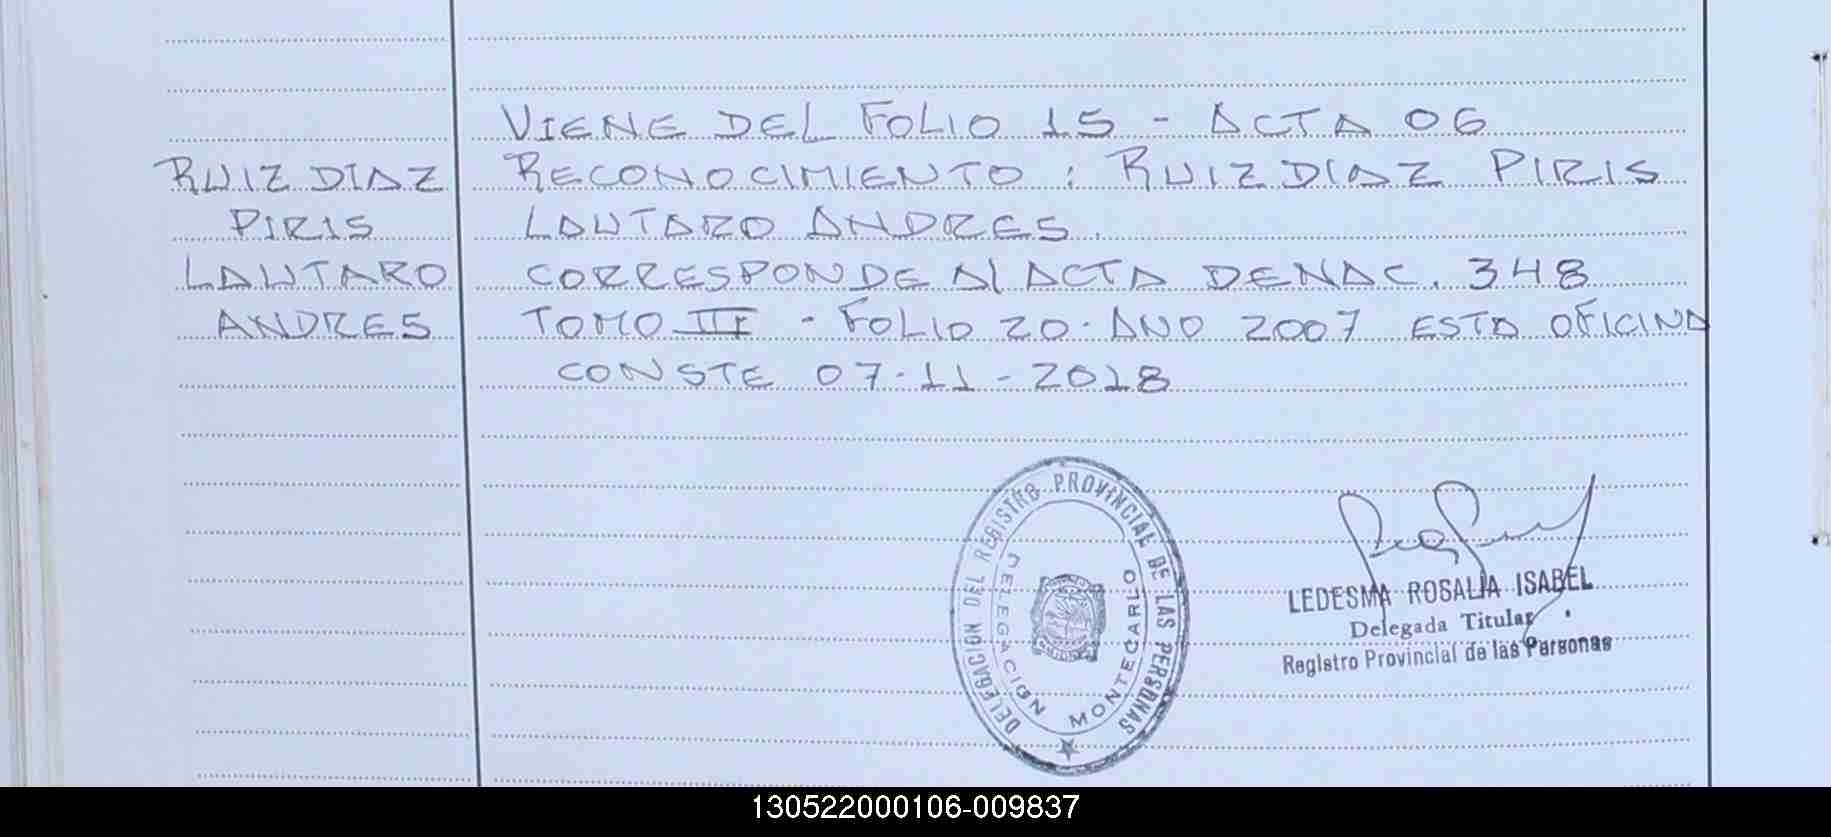 VIENE DEL FOLIO 15 - ACTA 06
RUIZ DIAZ
PIRIS
LAUTARO
ANDRES
RECONOCIMIENTO : RUIZ DIAZ PIRIS
LAUTARO ANDRES.
CORRESPONDE Al ACTA DE NAC. 348
TOMO III - FOLIO 20 - AÑO 2007 ESTA OFICINA
CONSTE 07-11-2018
DELEGACIÓN DEL REGISTRO PROVINCIAL DE LAS PERSONAS
DELEGACION MONTECARLO
LEDESMA ROSALIA ISABEL
Delegada Titular
Registro Provincial de las Personas
130522000106-009837